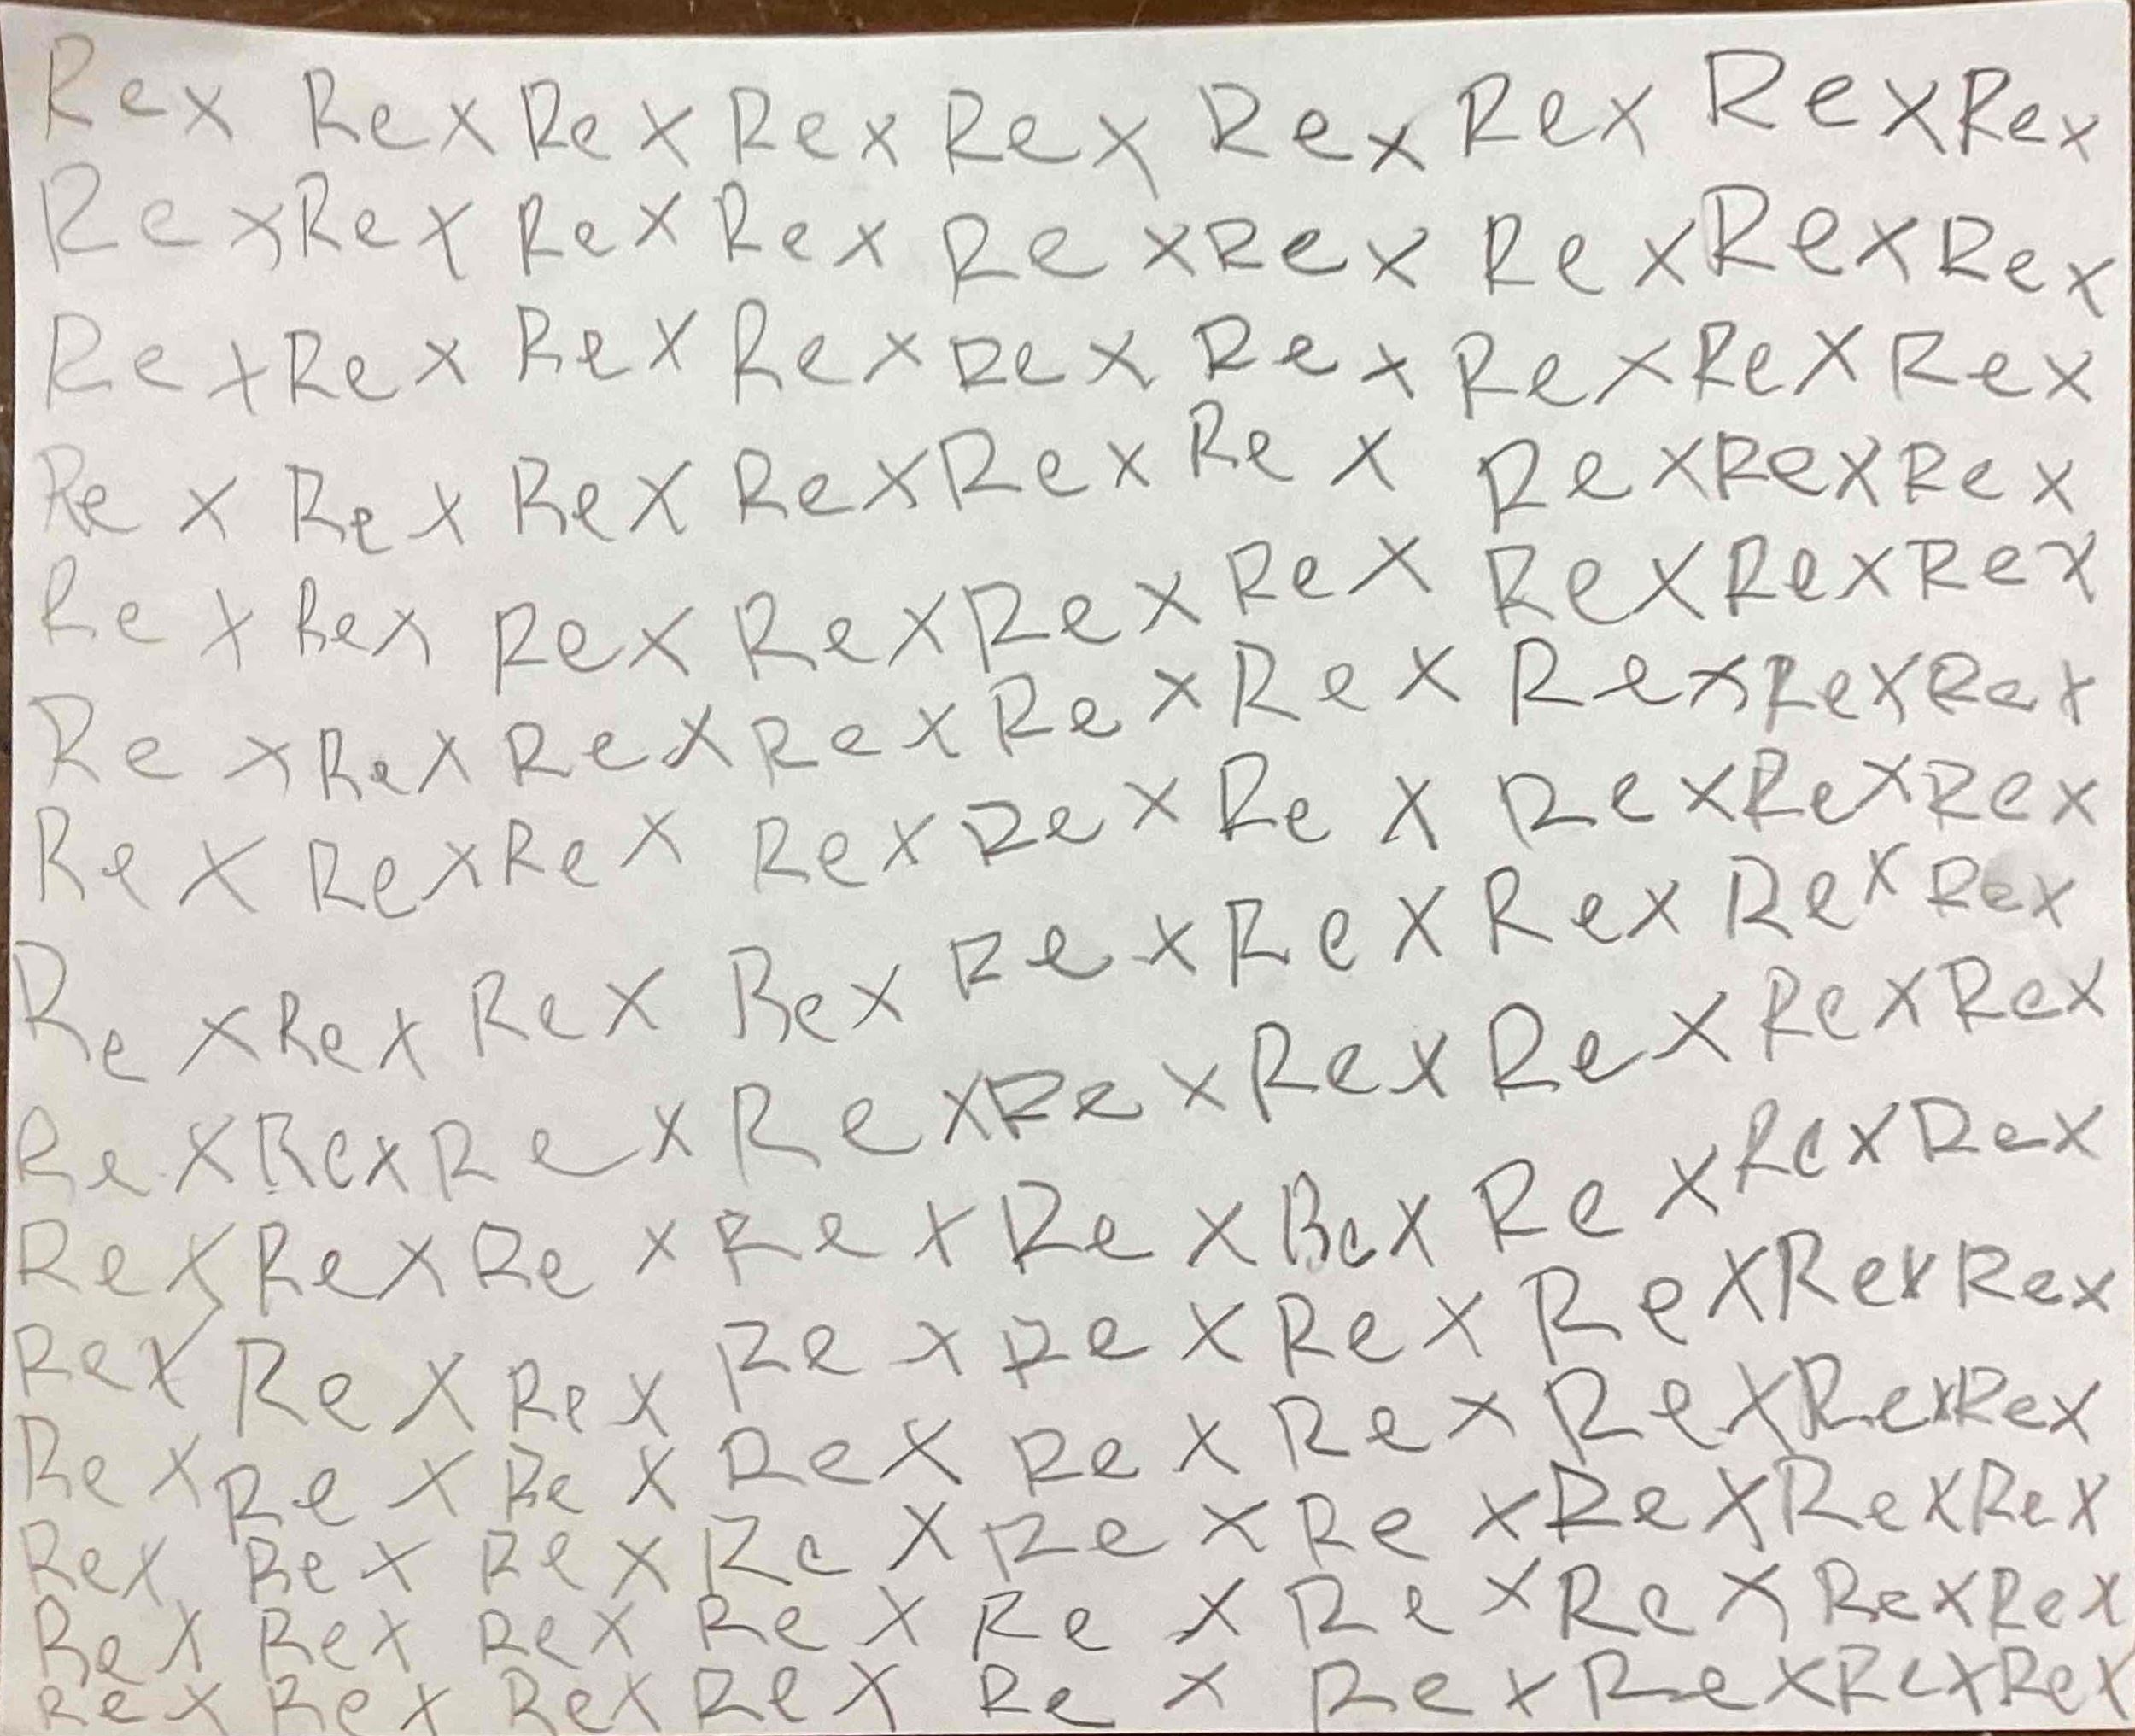 Rex Rex Rex Rex Rex Rex Rex Rex Rex
Rex Rex Rex Rex Rex Rex Rex Rex Rex
Rex Rex Rex Rex Rex Rex Rex Rex Rex
Rex Rex Rex Rex Rex Rex Rex Rex Rex
Rex Rex Rex Rex Rex Rex Rex Rex Rex
Rex Rex Rex Rex Rex Rex Rex Rex Rex
Rex Rex Rex Rex Rex Rex Rex Rex Rex
Rex Rex Rex Rex Rex Rex Rex Rex Rex
Rex Rex Rex Rex Rex Rex Rex Rex Rex
Rex Rex Rex Rex Rex Rex Rex Rex Rex
Rex Rex Rex Rex Rex Rex Rex Rex Rex
Rex Rex Rex Rex Rex Rex Rex Rex Rex
Rex Rex Rex Rex Rex Rex Rex Rex Rex
Rex Rex Rex Rex Rex Rex Rex Rex Rex
Rex Rex Rex Rex Rex Rex Rex Rex Rex